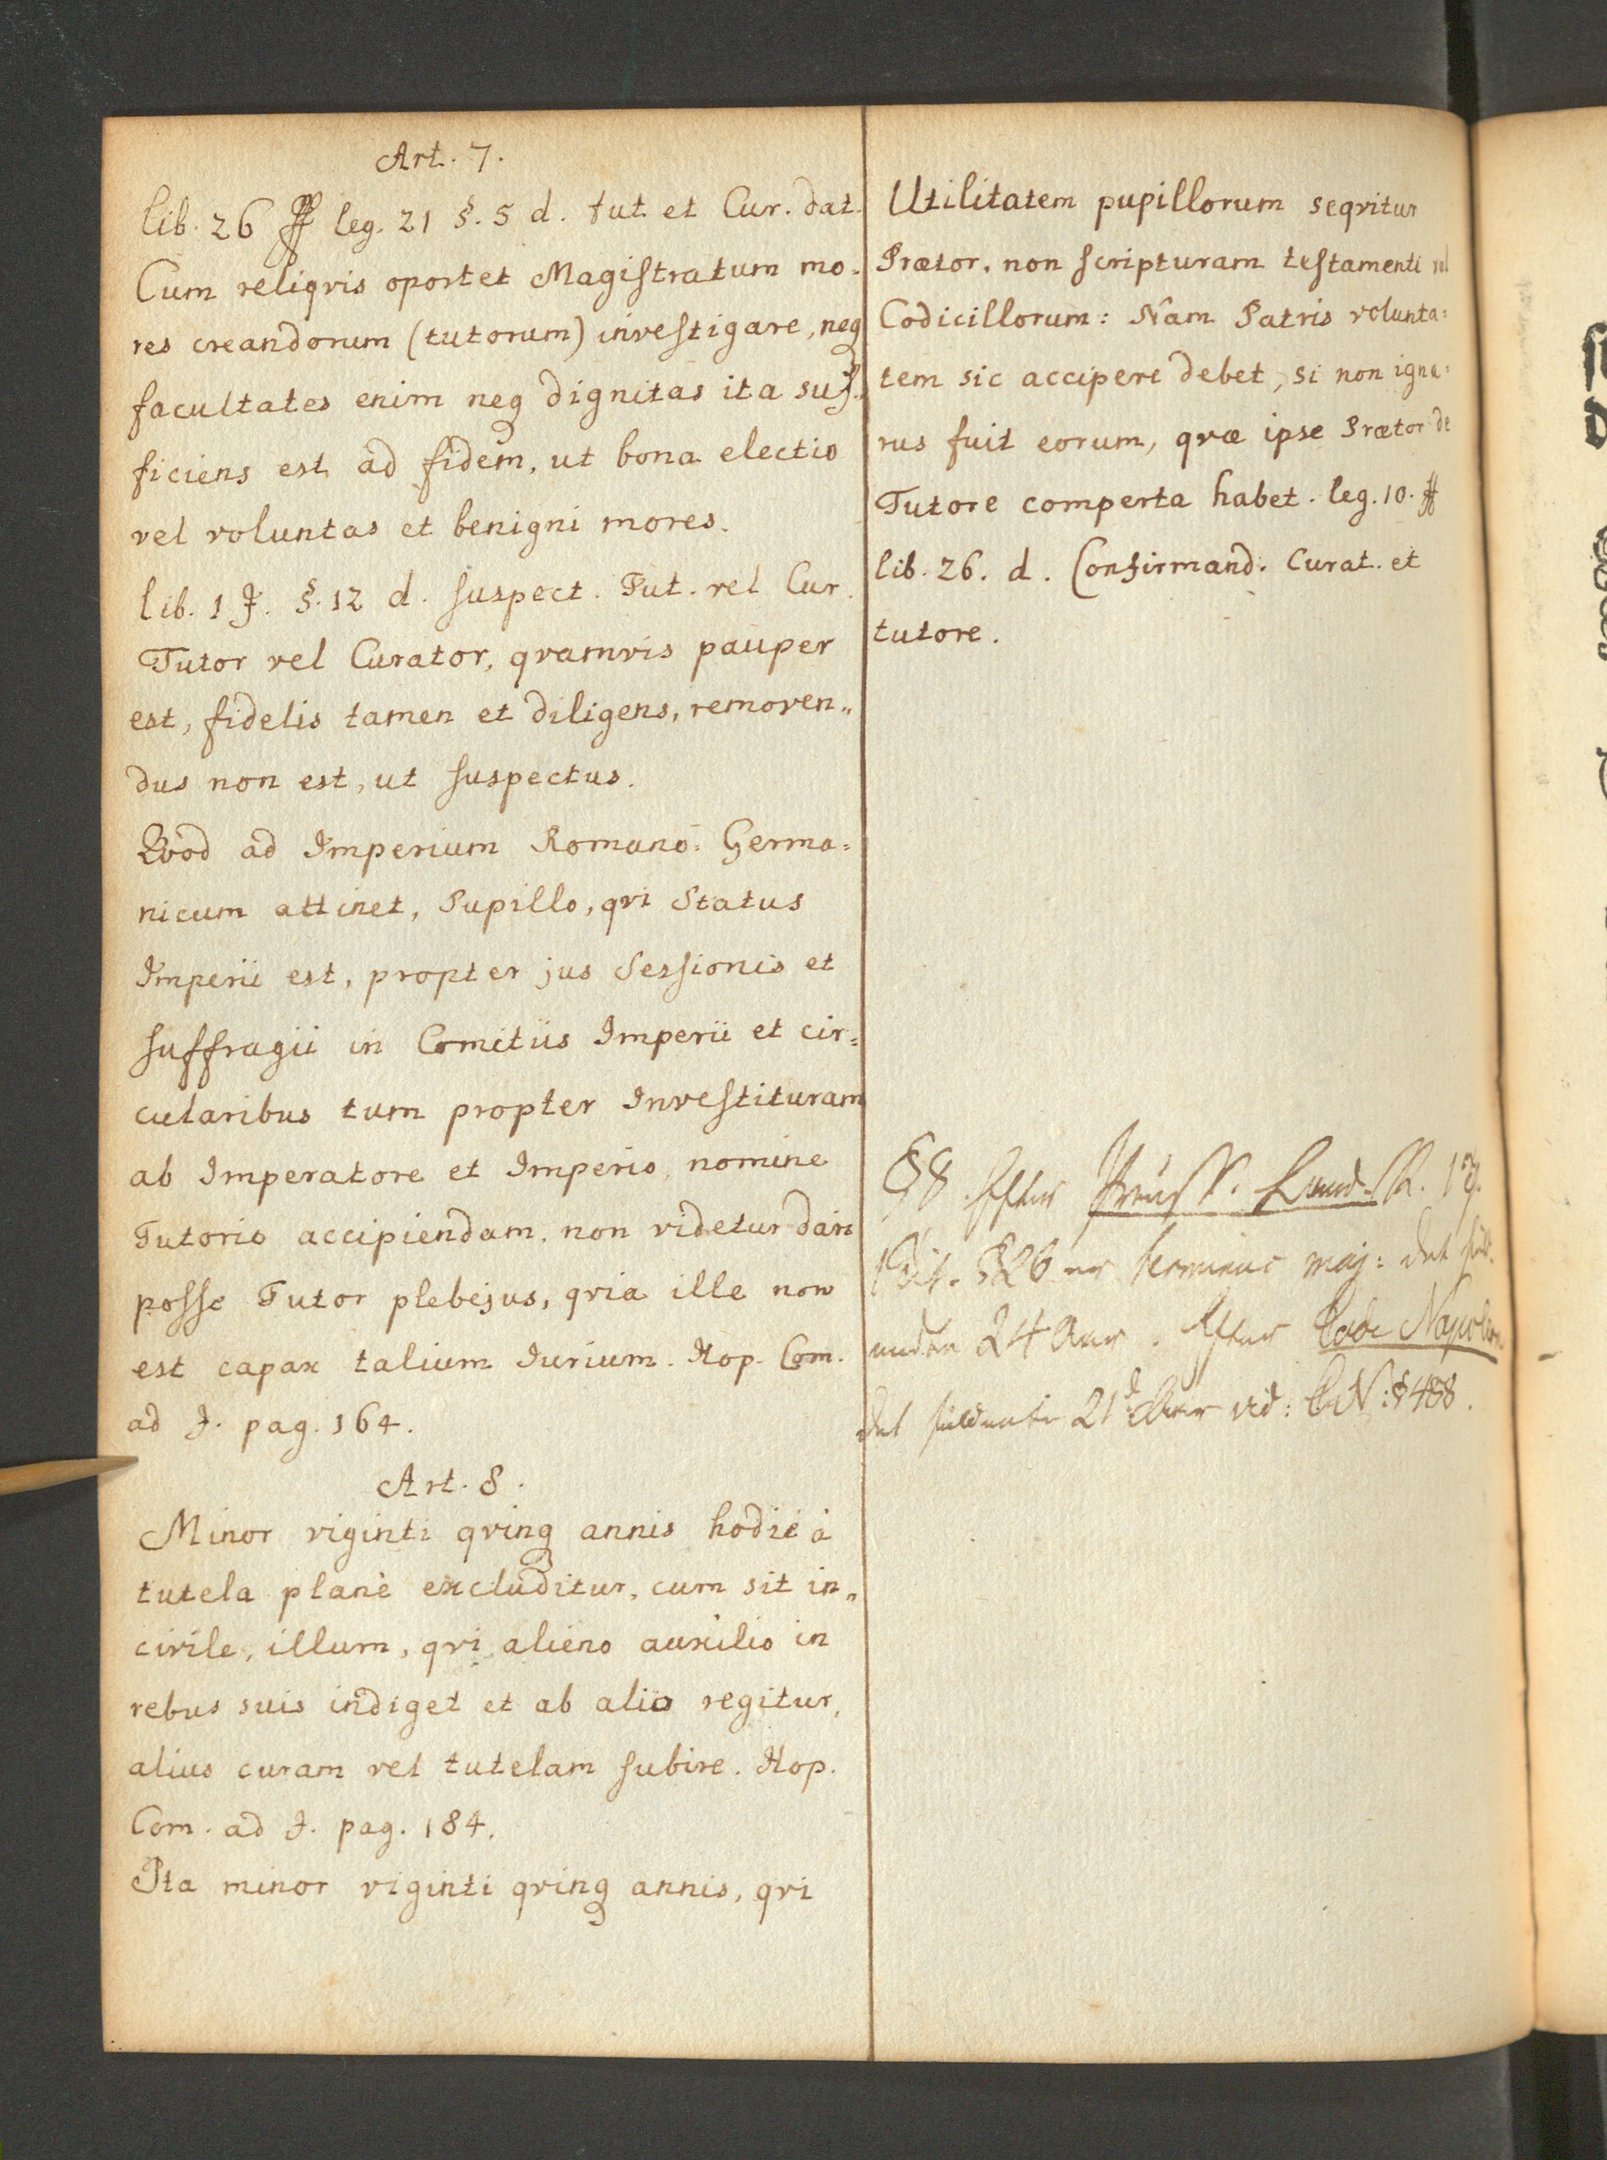 Art. 7.
lib. 26 ff leg. 21 §. 5 d. tut et Cur. dat.
Cum reliqvis oportet Magiſtratum mo-
res creandorum (tutorum) inveſtigare, neq
facultates enim neq dignitas ita suf-
ficiens est ad fidem, ut bona electio
vel voluntas et benigni mores.
lib. 1 J. §. 12 d. ſuspect. Tut. vel Cur.
Tutor vel Curator, qvamvis pauper
est, fidelis tamen et diligens, removen„
dus non est, ut ſuspectus.
Qvod ad Imperium Romano=Germa=
nicum attinet, Pupillo, qvi Status
Imperii est, propter jus Sesſionis et
ſuffragii in Comitiis Imperii et cir=
cularibus tum propter Inveſtituram
ab Imperatore et Imperio, nomine
Tutoris accipiendam, non videtur dari
posſe Tutor plebejus, qvia ille non
est capax talium Jurium. Hop. Com.
ad J. pag. 164.
Art. 8.
Minor viginti qvinq annis hodie à
tutela planè excluditur, cum sit in„
civile, illum, qvi alieno auxilio in
rebus suis indiget et ab aliis regitur,
alius curam vel tutelam ſubire. Hop.
Com. ad J. pag. 184.
Ita minor viginti qvinq annis, qvi
Utilitatem pupillorum seqvitur
Prætor, non ſcripturam teſtamenti vel
Codicillorum: Nam Patris volunta=
tem sic accipere debet, si non igna=
rus fuit eorum, qvæ ipse Prætor de
Tutore comperta habet. leg. 10. ff
lib. 26. d. Confirmand. Curat. et
tutore.
§8. Efter Preuſſ. Land. R. 1 J.
Tit. §26 er terminus maj: det
24 Aar. Efter Code Napoleon
det 21d Aar vid: C N: §488.